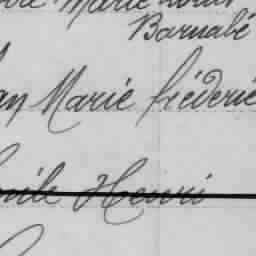 Marie
Barnabé
an Marie fréderic
mile Henri